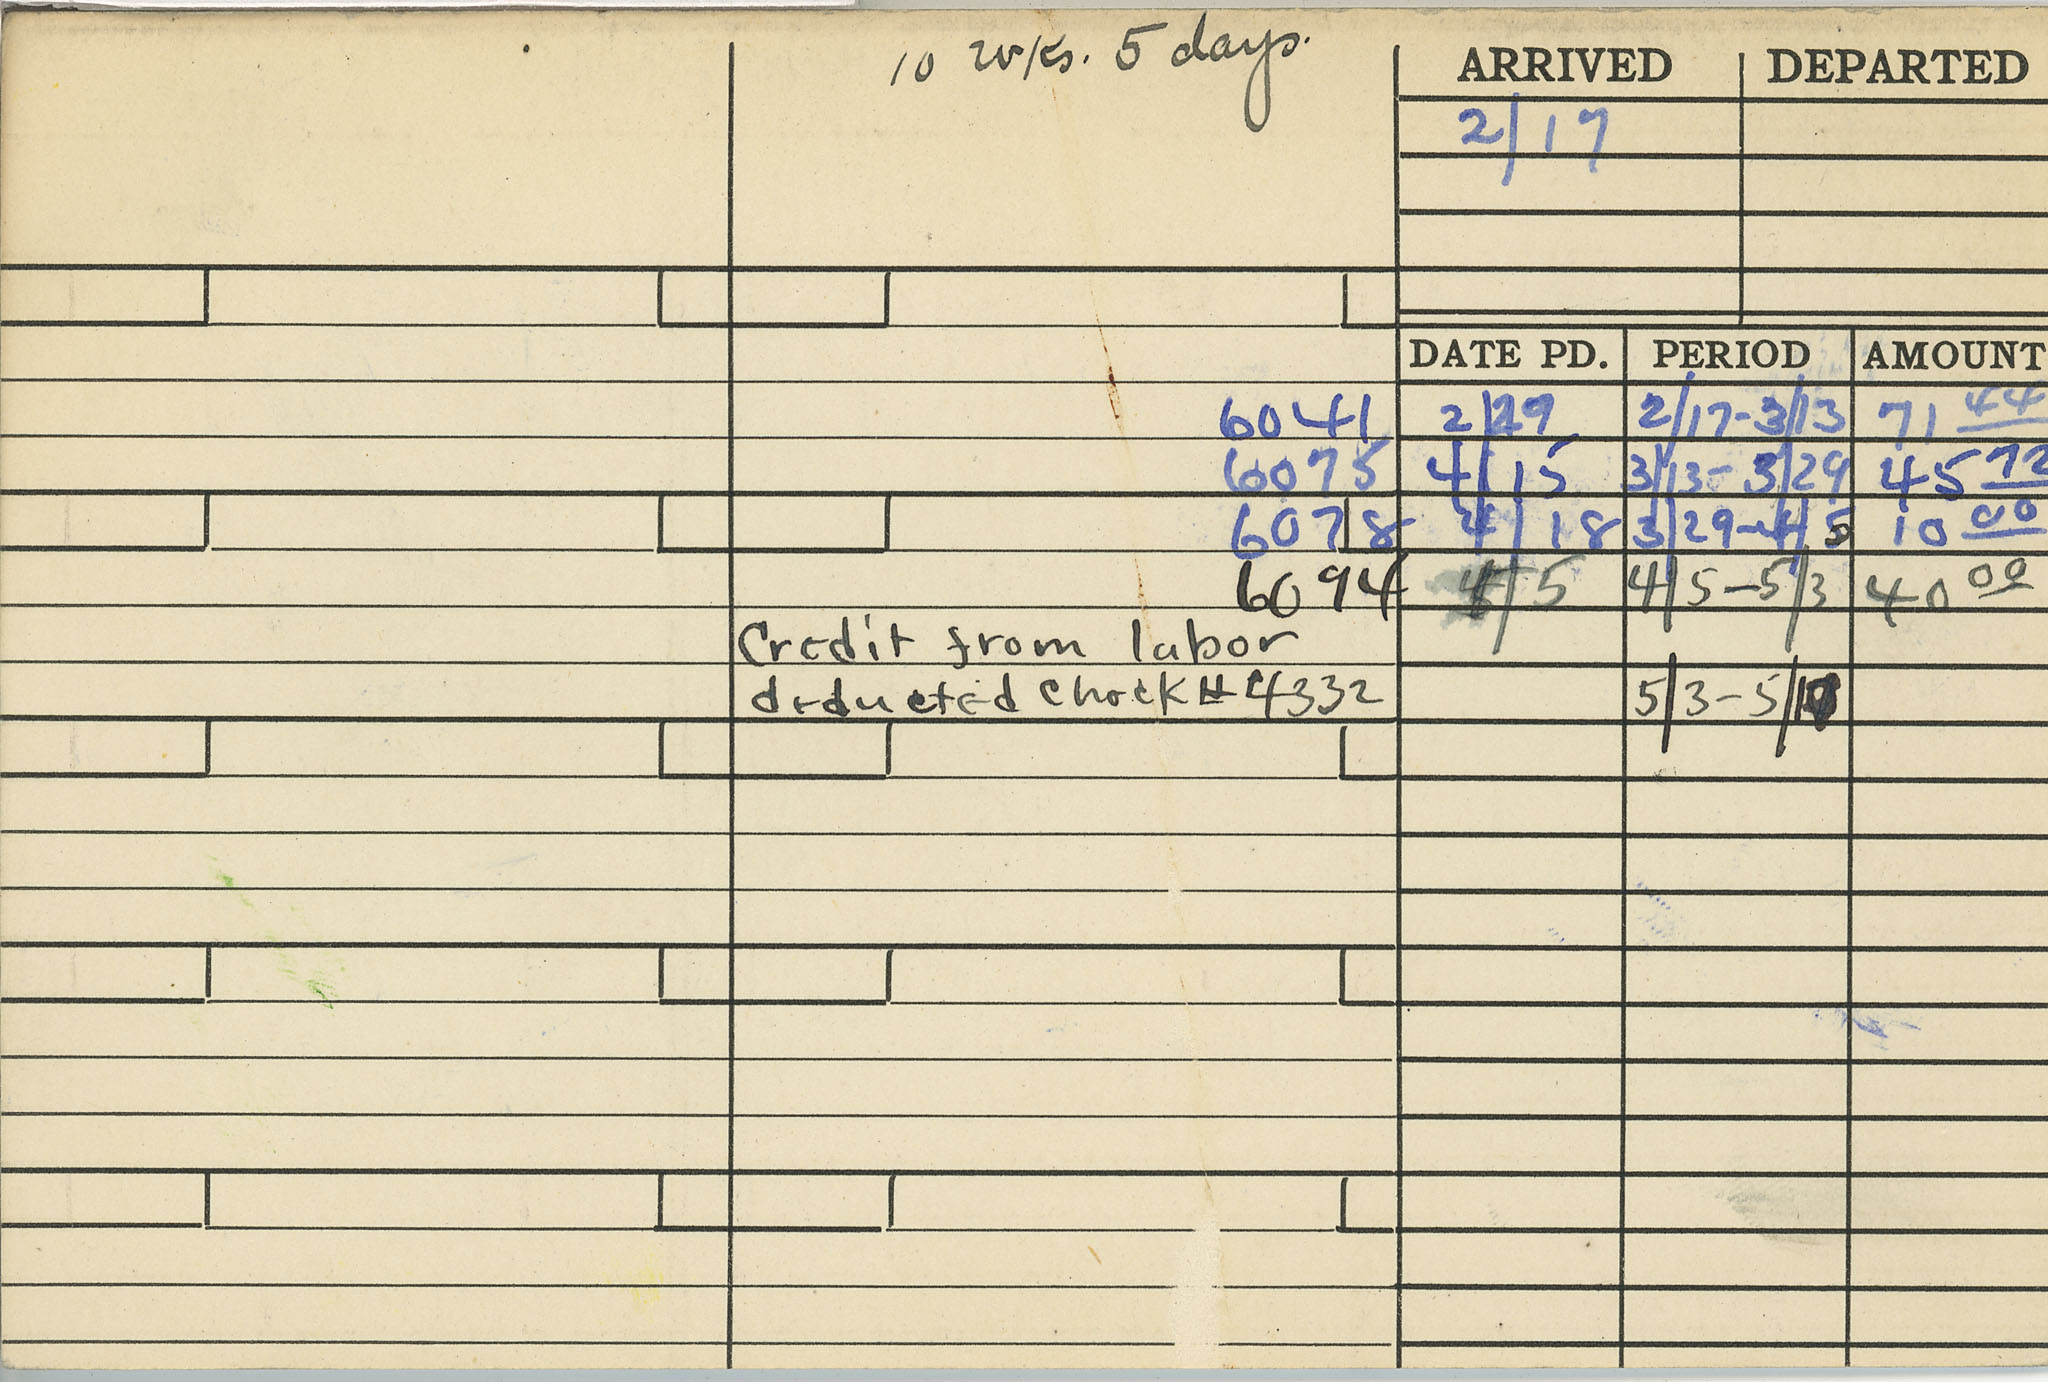 10 wks. 5 days.
ARRIVED DEPARTED
2/17
DATE PD. PERIOD AMOUNT
6041 2/29 2/17-3/13 71 44
6075 4/15 3/13-3/29 45 72
6078 4/18 3/29-4/5 10 00
6094 4/5 4/5-5/3 40 00
Credit from labor
deducted check # 4332 5/3-5/10